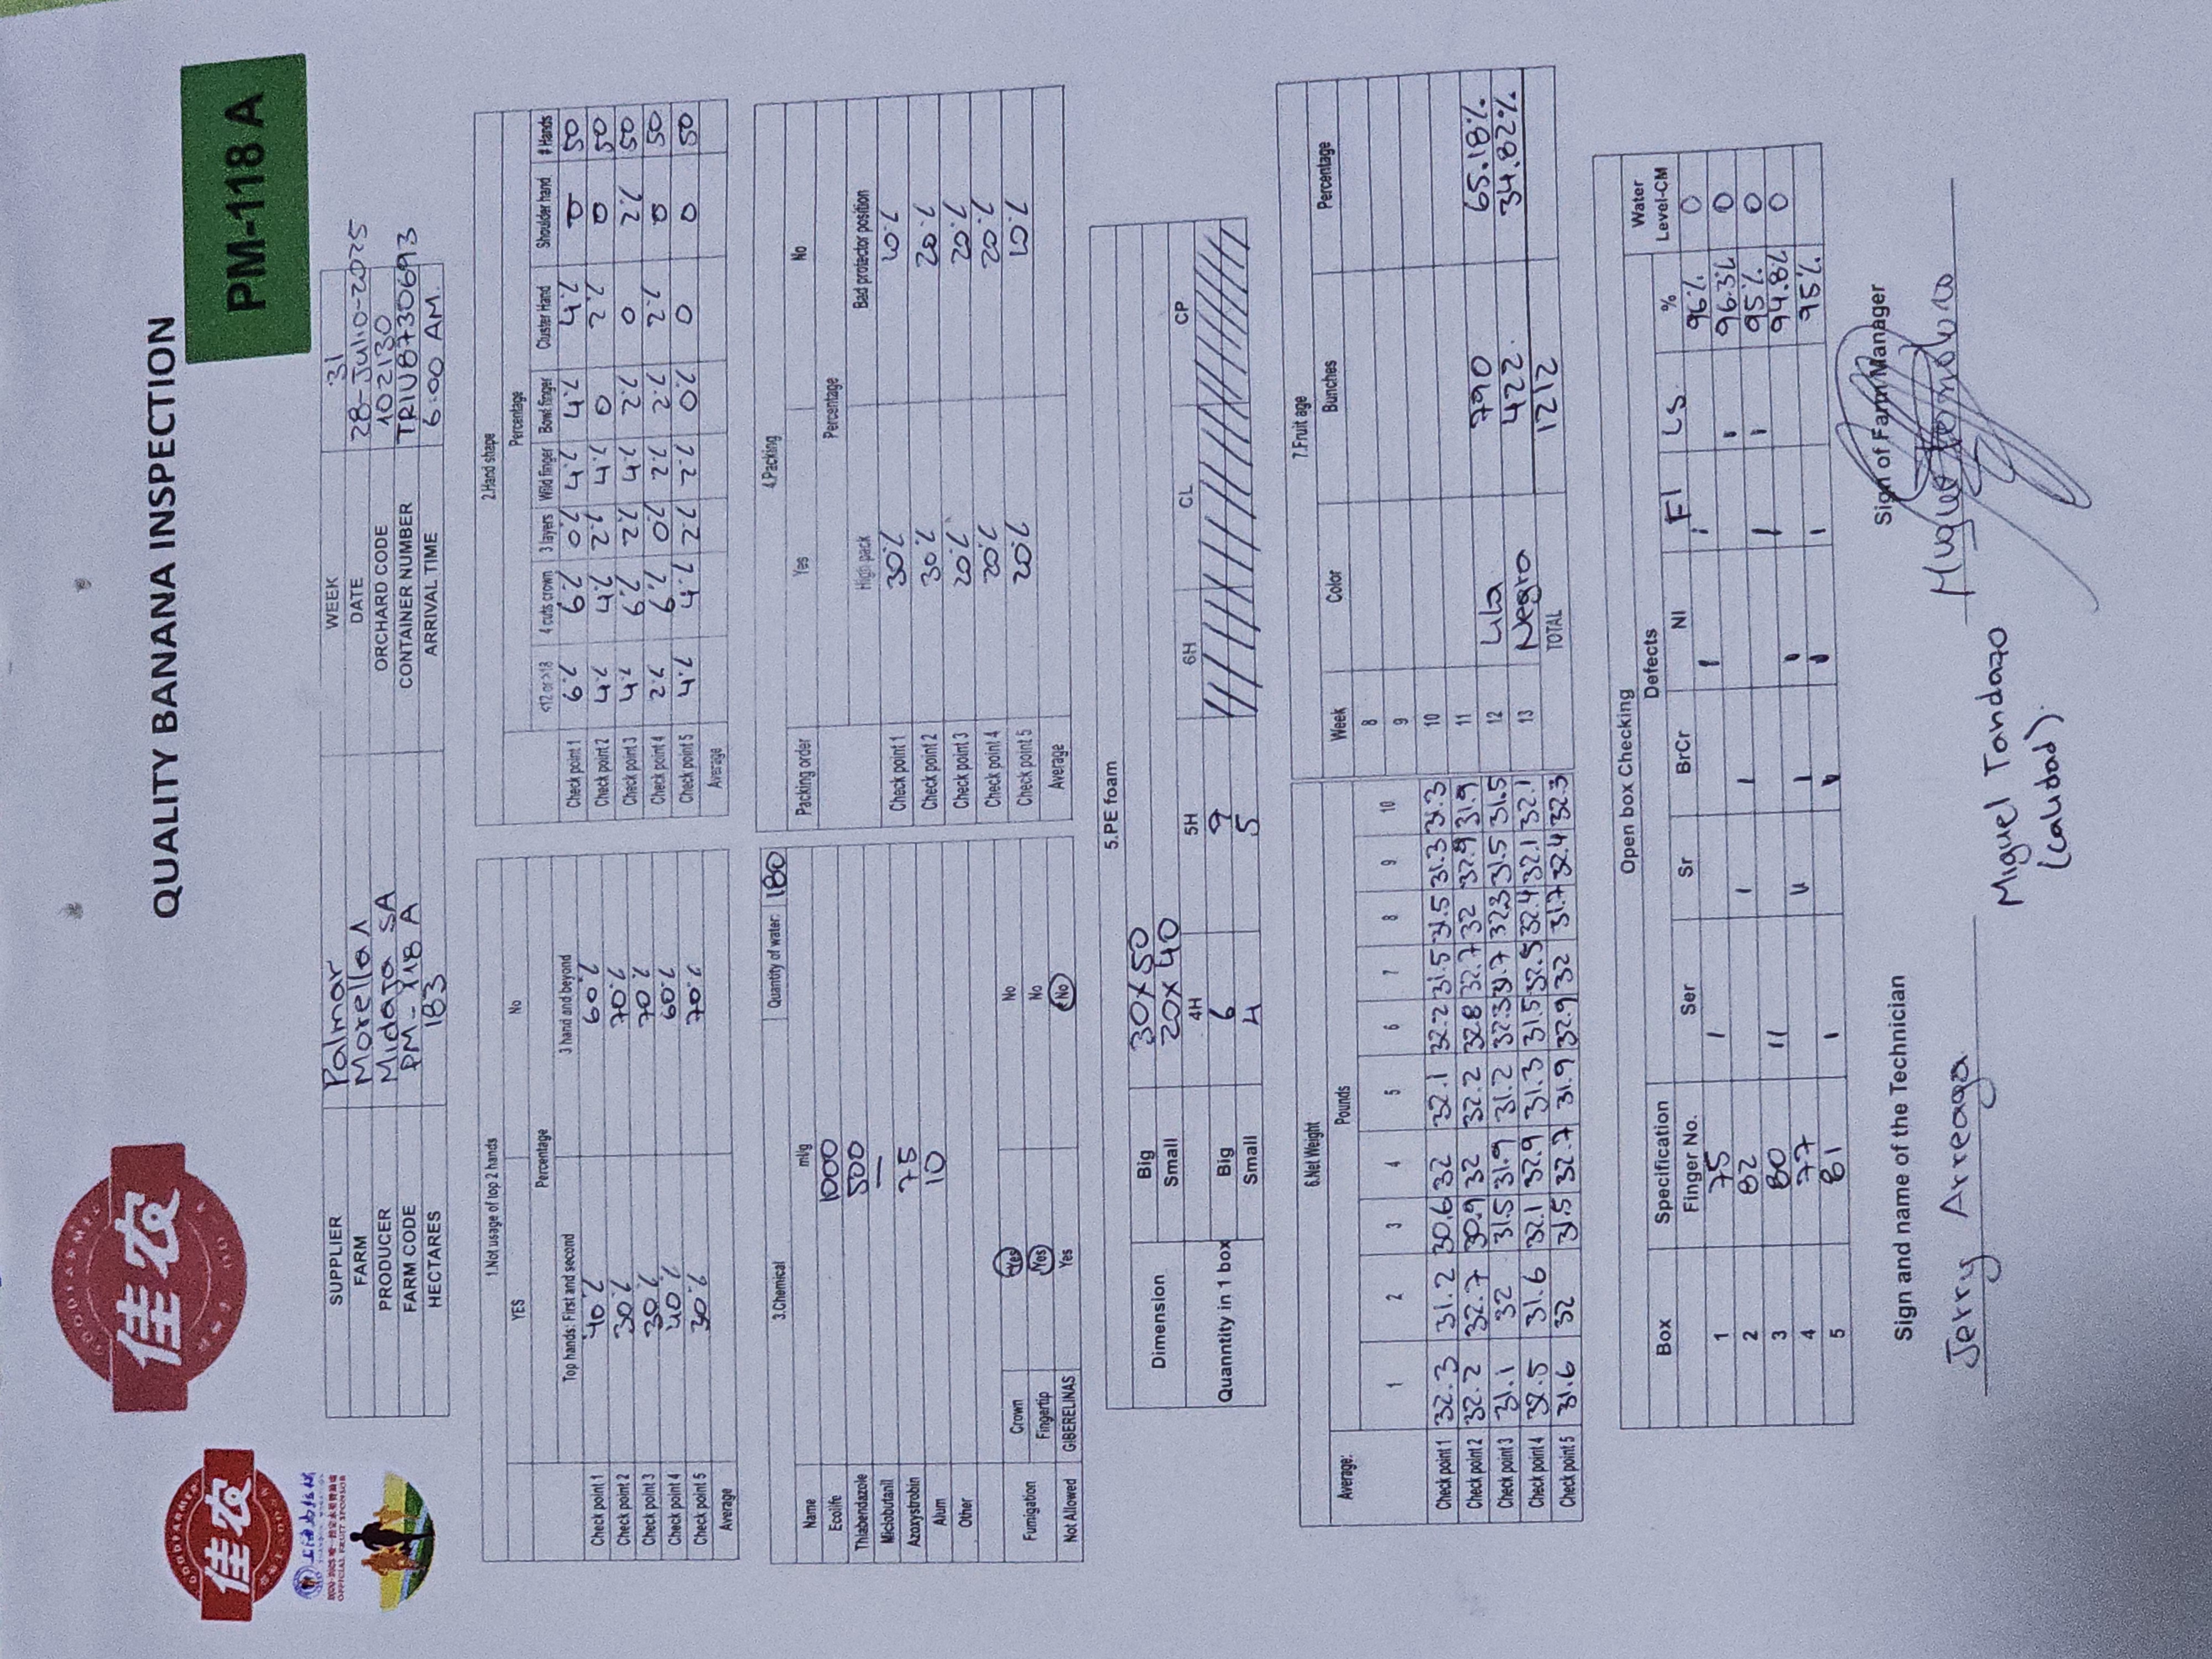 GOODFARMER
佳农
2020-2025赛季指定水果赞助商
OFFICIAL FRUIT SPONSOR
GOODFARMER
佳农
QUALITY BANANA INSPECTION
PM-118 A
SUPPLIER Palmar WEEK 31
FARM Morella 1 DATE 28-Julio-2025
PRODUCER Midaja SA ORCHARD CODE 102130
FARM CODE PM-118 A CONTAINER NUMBER TRIU8730693
HECTARES 183 ARRIVAL TIME 6:00 AM.
1.Not usage of top 2 hands
YES No
Percentage
Top hands: First and second 3 hand and beyond
Check point 1 40% 60%
Check point 2 30% 70%
Check point 3 30% 70%
Check point 4 40% 60%
Check point 5 30% 70%
Average
2.Hand shape
Percentage
<12 or >18 4 cuts crown 3 layers Wild finger Bowd finger Cluster Hand Shoulder hand # Hands
Check point 1 6% 6% 0% 4% 4% 4% 0 50
Check point 2 4% 4% 2% 4% 0 2% 0 50
Check point 3 4% 6% 2% 4% 2% 0 2% 50
Check point 4 2% 6% 0% 2% 2% 2% 0 50
Check point 5 4% 4% 2% 2% 0% 0 0 50
Average
3.Chemical Quantity of water: 180
Name ml/g
Ecolife 1000
Thiabendazole 500
Miclobutanil —
Azoxystrobin 75
Alum 10
Other
Fumigation Crown Yes No
Fingertip Yes No
Not Allowed GIBERELINAS Yes No
4.Packing
Packing order Yes No
Percentage
High pack Bad protector position
Check point 1 30%
Check point 2 30% 20%
Check point 3 20% 20%
Check point 4 20% 20%
Check point 5 20% 10%
Average
5.PE foam
Dimension Big 30x50
Small 20x40
4H 5H 6H CL CP
Quanntity in 1 box Big 6 9
Small 4 5
6.Net Weight
Average: Pounds
1 2 3 4 5 6 7 8 9 10
Check point 1 32.3 31.2 30.6 32 32.1 32.2 31.5 31.5 31.3 31.3
Check point 2 32.2 32.7 30.9 32 32.2 32.8 32.7 32 32.9 31.9
Check point 3 31.1 32 31.5 31.9 31.2 32.3 31.7 32.3 31.5 31.5
Check point 4 32.5 31.6 32.1 32.9 31.3 31.5 32.5 32.4 32.1 32.1
Check point 5 31.6 32 31.5 32.7 31.9 32.9 32 31.7 32.4 32.3
7.Fruit age
Week Color Bunches Percentage
8
9
10
11
12 Lila 790 65.18%
13 Negro 422 34.82%
TOTAL 1212
Open box Checking
Box Specification Defects Water
Finger No. Ser Sr BrCr NI FI LS. % Level-CM
1 75 I I I 96% 0
2 82 I I I 96.3% 0
3 80 II I I 95% 0
4 77 II I I 94.8% 0
5 81 I I I I 95%
Sign and name of the Technician
Jerry Arreaga
Sign of Farm Manager
Miguel Tandazo
Miguel Tandazo
(calidad).